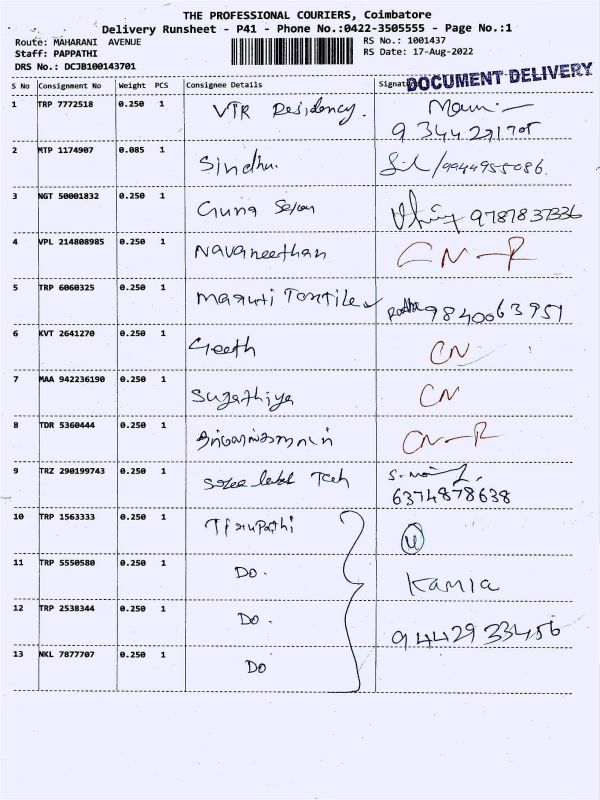 THE PROFESSIONAL COURIERS, Coimbatore
Delivery Runsheet - P41 - Phone No.:0422-3505555 - Page No.:1
Route: MAHARANI AVENUE
RS No.: 1001437
Staff: PAPPATHI
RS Date: 17-Aug-2022
DRS No.: DCJB100143701
DOCUMENT DELIVERY
S No Consignment No Weight PCS Consignee Details
1 TRP 7772518 0.250 1 VTR Residency.
2 MTP 1174907 0.085 1 Sindhu. /9944955086.
3 NGT 50001832 0.250 1 Guna 9787837336
4 VPL 214808985 0.250 1 Navaneethan CN-R
5 TRP 6060325 0.250 1 Maruti Textile 9840063951
6 KVT 2641270 0.250 1 Geeth CN
7 MAA 942236190 0.250 1 Sugathiya CN
8 TDR 5360444 0.250 1 CN-R
9 TRZ 290199743 0.250 1
6374878638
10 TRP 1563333 0.250 1 Tirupathi 4
11 TRP 5550580 0.250 1 Do. Kamla
12 TRP 2538344 0.250 1 Do. 9442933456
13 NKL 7877707 0.250 1 Do